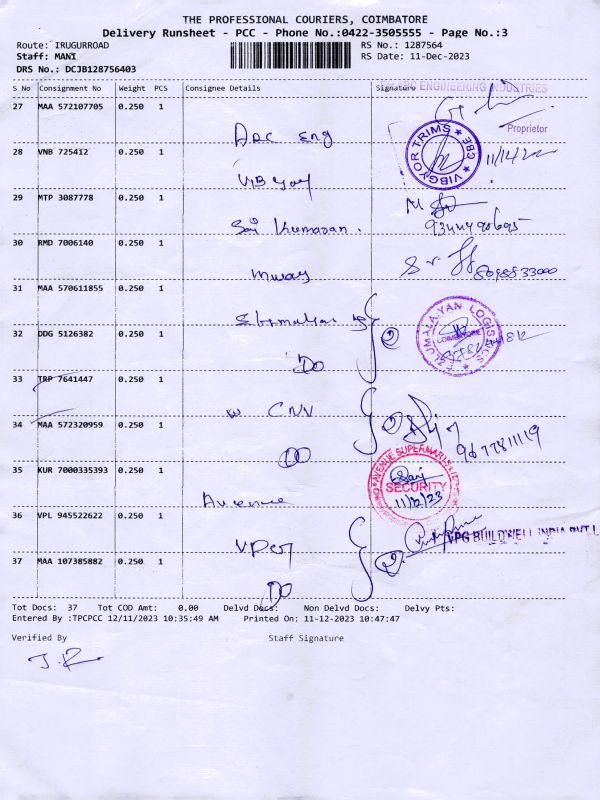 THE PROFESSIONAL COURIERS, COIMBATORE
Delivery Runsheet - PCC - Phone No.:0422-3505555 - Page No.:3
Route: IRUGURROAD
Staff: MANI
DRS No.: DCJB128756403
RS No.: 1287564
RS Date: 11-Dec-2023
S No Consignment No Weight PCS Consignee Details Signature
ENGINEERING INDUSTRIES
27 MAA 572107705 0.250 1
Proprietor
ADC Eng
VIBGYOR TRIMS CBE
28 VNB 725412 0.250 1
29 MTP 3087778 0.250 1
Sri Kumaran.
30 RMD 7006140 0.250 1
8098833000
Mway
31 MAA 570611855 0.250 1
LOGISTICS
COIMBATORE
32 DDG 5126382 0.250 1
DO
33 TRP 7641447 0.250 1
CNV
34 MAA 572320959 0.250 1
9677811119
DO
AVENUE SUPERMARTS LTD
SECURITY
11/12/23
35 KUR 7000335393 0.250 1
Avenue
36 VPL 945522622 0.250 1
VPG BUILDWELL INDIA PVT L
37 MAA 107385882 0.250 1
DO
Tot Docs: 37 Tot COD Amt: 0.00 Delvd Docs: Non Delvd Docs: Delvy Pts:
Entered By :TPCPCC 12/11/2023 10:35:49 AM Printed On: 11-12-2023 10:47:47
Verified By Staff Signature